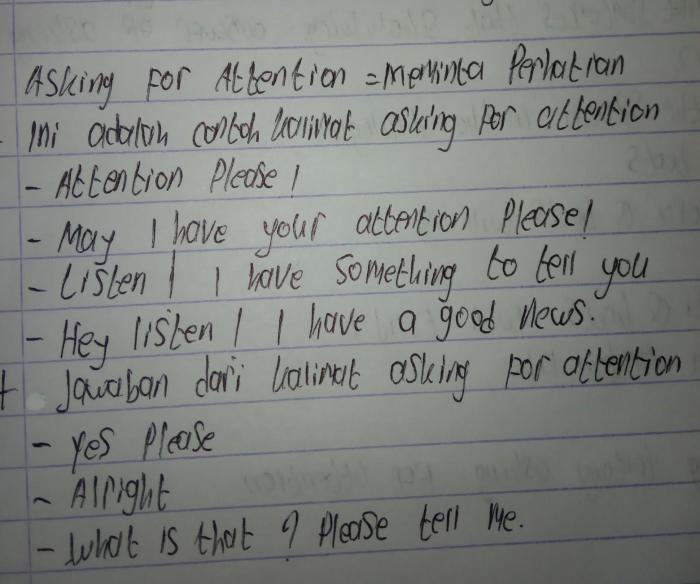 Asking For Attention = Meminta Perhatian
Ini adalah contoh kalimat asking For attention
- Attention Please!
- May I have your attention Please!
- Listen! I have something to tell you
- Hey listen! I have a good news.
Jawaban dari kalimat asking For attention
- Yes Please
- Alright
- What is that? Please tell Me.